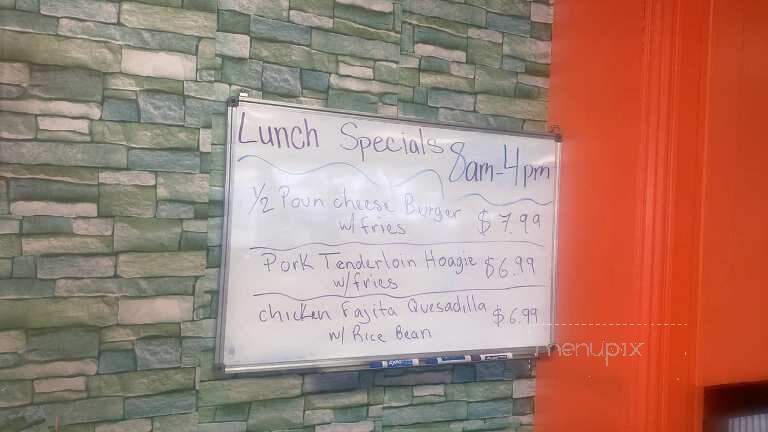 Lunch Specials 8am-4pm
1/2 Poun cheese Burger $7.99
w/fries
Pork Tenderloin Hoagie $6.99
w/fries
chicken Fajita Quesadilla $6.99
w/ Rice Bean
menupix